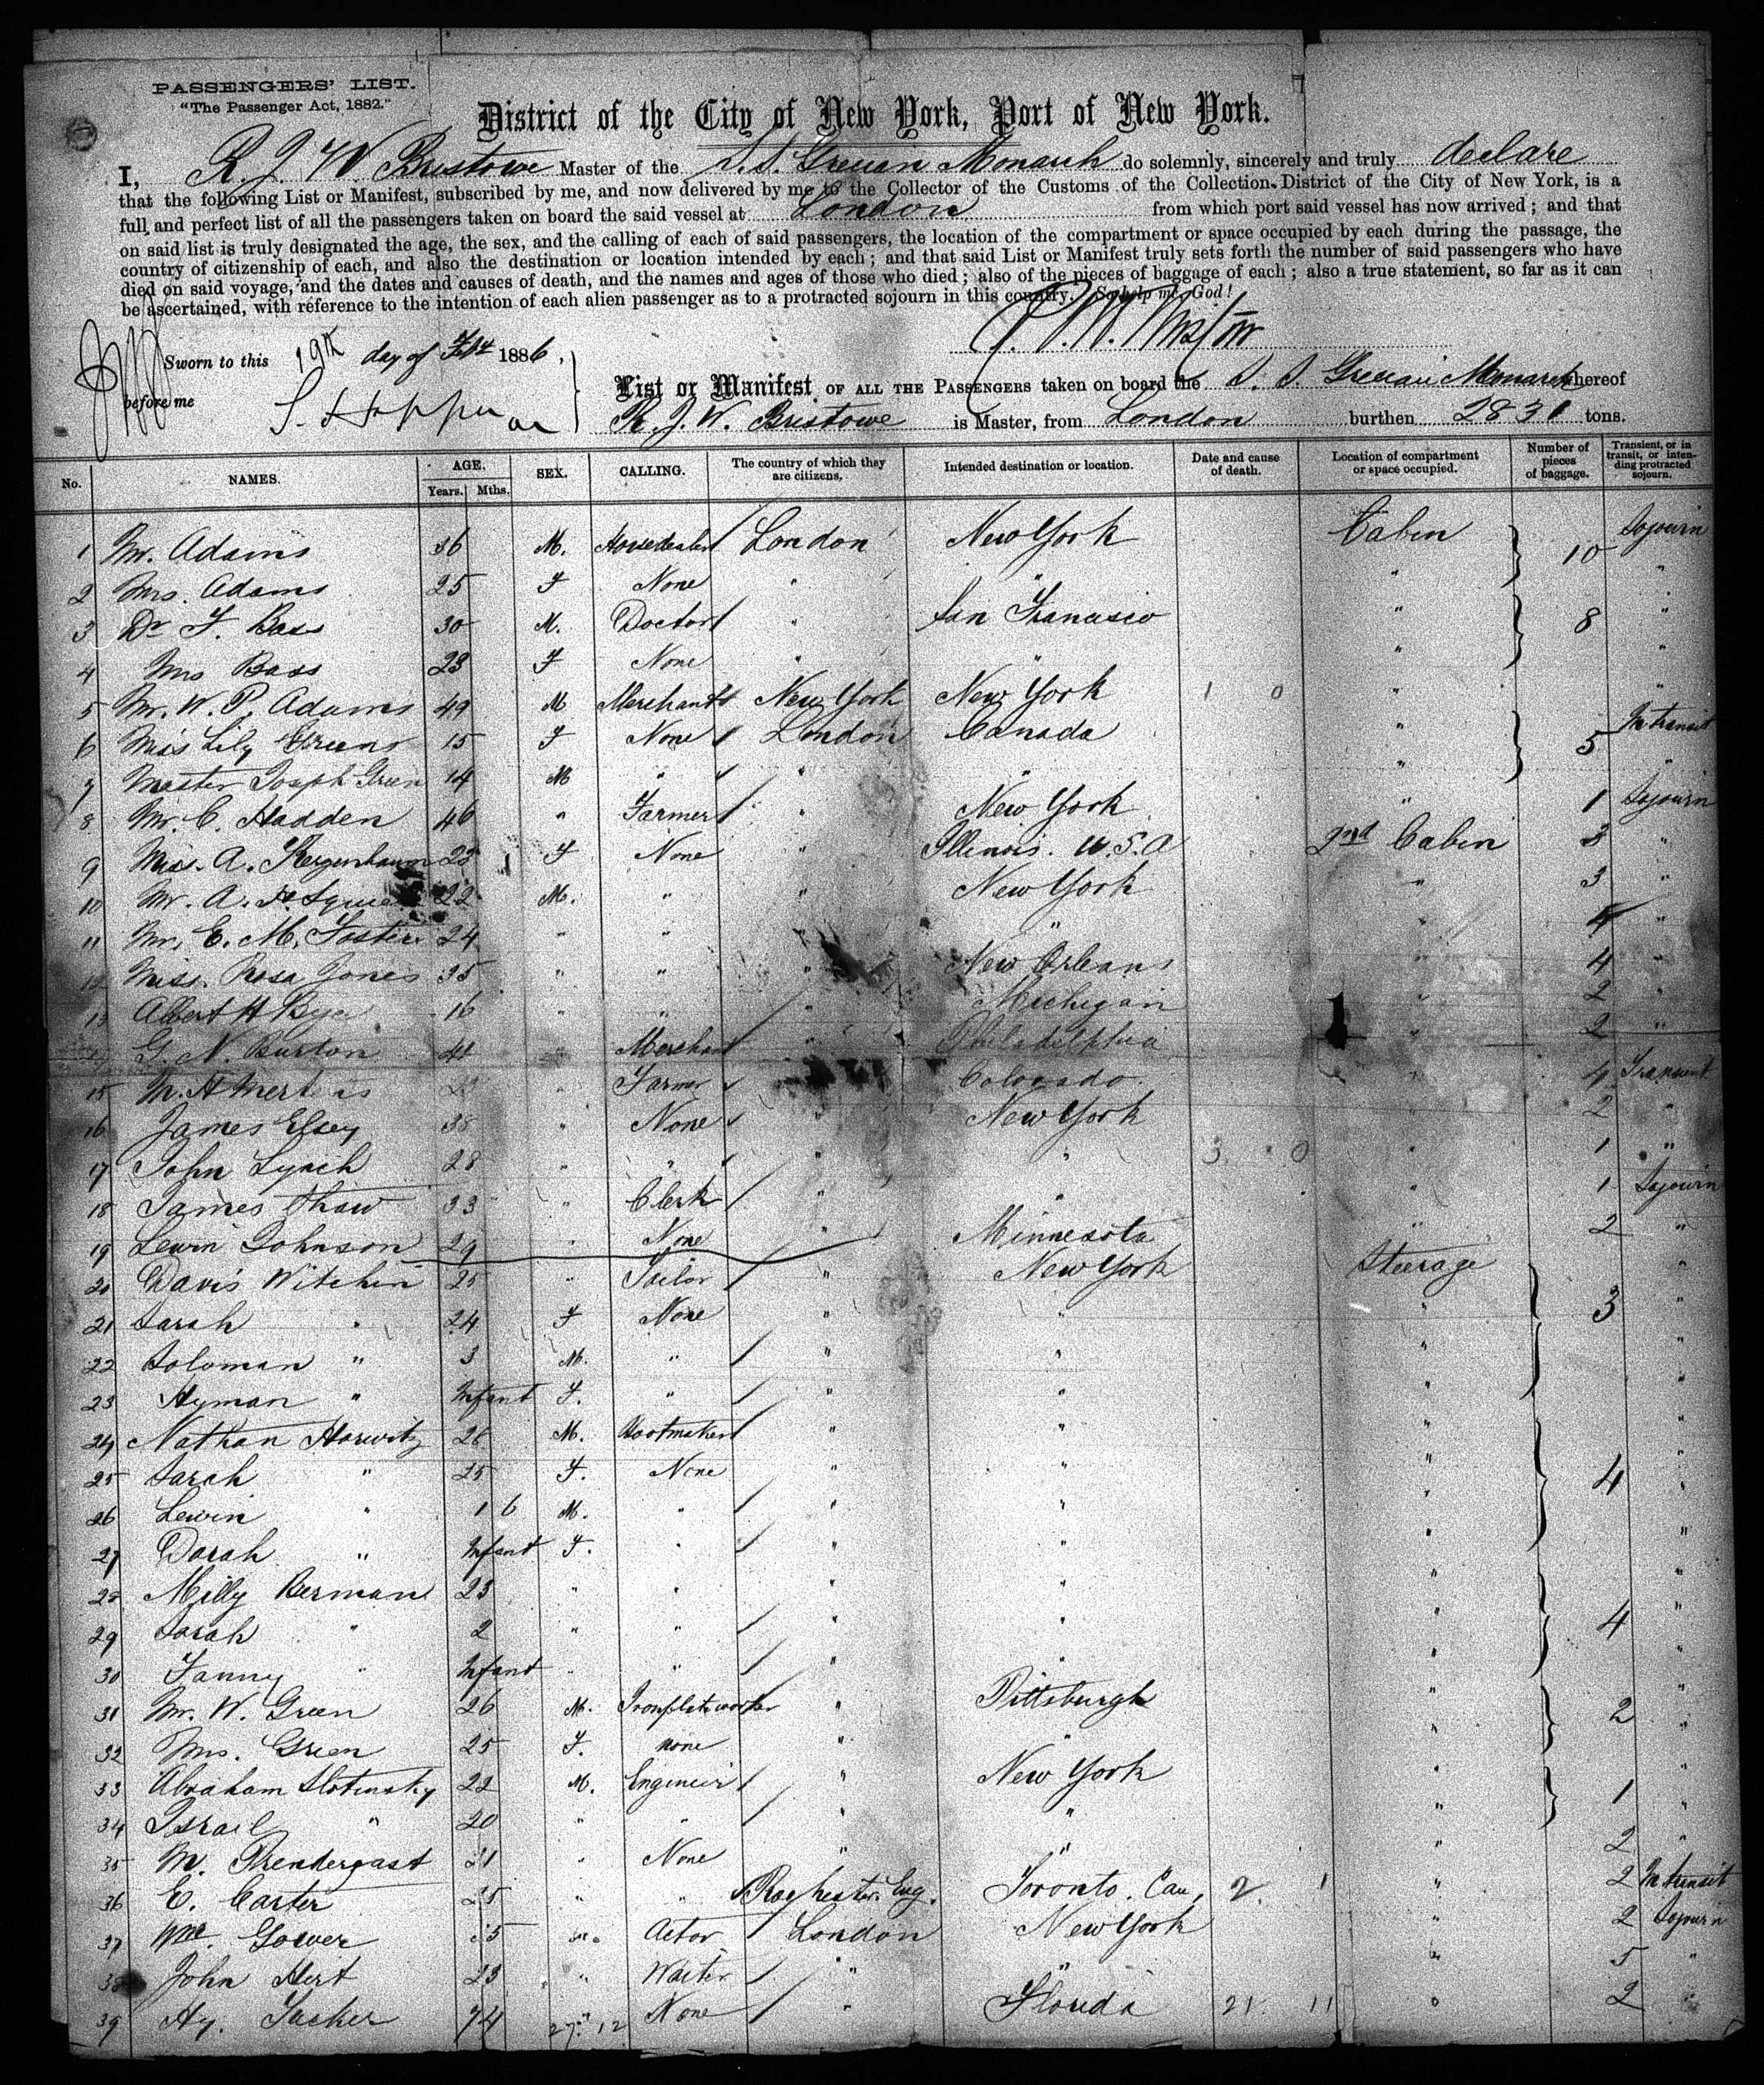 PASSENGERS' LIST.
"The Passenger Act, 1882."
District of the City of New York, Port of New York.
I, R. J. W. Bristowe Master of the S.S. Grecian Monarch do solemnly, sincerely and truly declare
that the following List or Manifest, subscribed by me, and now delivered by me to the Collector of the Customs of the Collection District of the City of New York, is a
full and perfect list of all the passengers taken on board the said vessel at London from which port said vessel has now arrived; and that
on said list is truly designated the age, the sex, and the calling of each of said passengers, the location of the compartment or space occupied by each during the passage, the
country of citizenship of each, and also the destination or location intended by each; and that said List or Manifest truly sets forth the number of said passengers who have
died on said voyage, and the dates and causes of death, and the names and ages of those who died; also of the pieces of baggage of each; also a true statement, so far as it can
be ascertained, with reference to the intention of each alien passenger as to a protracted sojourn in this country. So help me God!
Sworn to this 19th day of 1886,
before me
List or Manifest OF ALL THE PASSENGERS taken on board the S. S. Grecian Monarch whereof
R. J. W. Bristowe is Master, from London burthen tons.
No. NAMES. AGE. Years. Mths. SEX. CALLING. The country of which they are citizens. Intended destination or location. Date and cause of death. Location of compartment or space occupied. Number of pieces of baggage. Transient, or in transit, or intending protracted sojourn.
1 Mr. Adams 36 M. Horsedealer London New York Cabin 10 Sojourn
2 Mrs. Adams 25 F None " " " "
3 Dr F. Bass 30 M. Doctor " San Francisco " 8 "
4 Mrs Bass 23 F None " " " "
5 Mr. W. P. Adams 49 M Merchant New York New York 1 0 " "
6 Miss Lily Green 15 F None London Canada " 5 In transit
7 Master Joseph Green 14 M " " " " "
8 Mr. C. Hadden 46 " Farmer " New York " 1 Sojourn
9 A. F None " Illinois. U.S.A 2nd Cabin 3 "
10 Mr. A. H. 22 M. " " New York " 3 "
11 Mr. E. M. Foster 24 " " " " 4 "
12 Miss. Rosa Jones 35 " " " New Orleans " 4 "
13 Albert H 16 " " " Michigan " 2 "
G. N. Burton " Merchant " Philadelphia " 2 "
15 M. H Farmer Colorado 4 Transient
16 James Elsey 38 " None " New York " 2 "
17 John Lynch 28 " " " " 3 0 " 1 "
18 James Shaw 33 " Clerk " " " 1 Sojourn
19 Lewin Johnson 29 " None " Minnesota " 2 "
20 Davis Witchin 25 " Tailor " New York Steerage "
21 Sarah " 24 F None " " " 3 "
22 Soloman " 3 M. " " " " "
23 Hyman " Infant F. " " " " "
24 Nathan Horwitz M. Bootmaker " " " "
25 Sarah " 25 F. None " " " 4 "
26 Lewin " 1 6 M. " " " " "
27 Dorah " Infant F. " " " " "
28 Milly Berman 23 " " " " " "
29 Sarah " 2 " " " " " 4 "
30 Fanny " Infant " " " " " "
31 Mr. W. Green 26 M. Ironplate worker " Pittsburgh " 2 "
32 Mrs. Green 25 F. none " " " "
33 Abraham Slotinsky 22 M. Engineer " New York " 1 "
34 Israel " 20 " " " " " "
35 M. Prendergast 21 " None " " " 2 "
36 E. Carter " " Rochester. Eng. Toronto. Can. 2 1 " 2 In transit
37 Wm. Gower M. Actor London New York " 2 Sojourn
38 John Hert 23 " Waiter " " " 5 "
39 Hy. Tucker 74 " 27 12 None " Florida 21 11 " 2 "